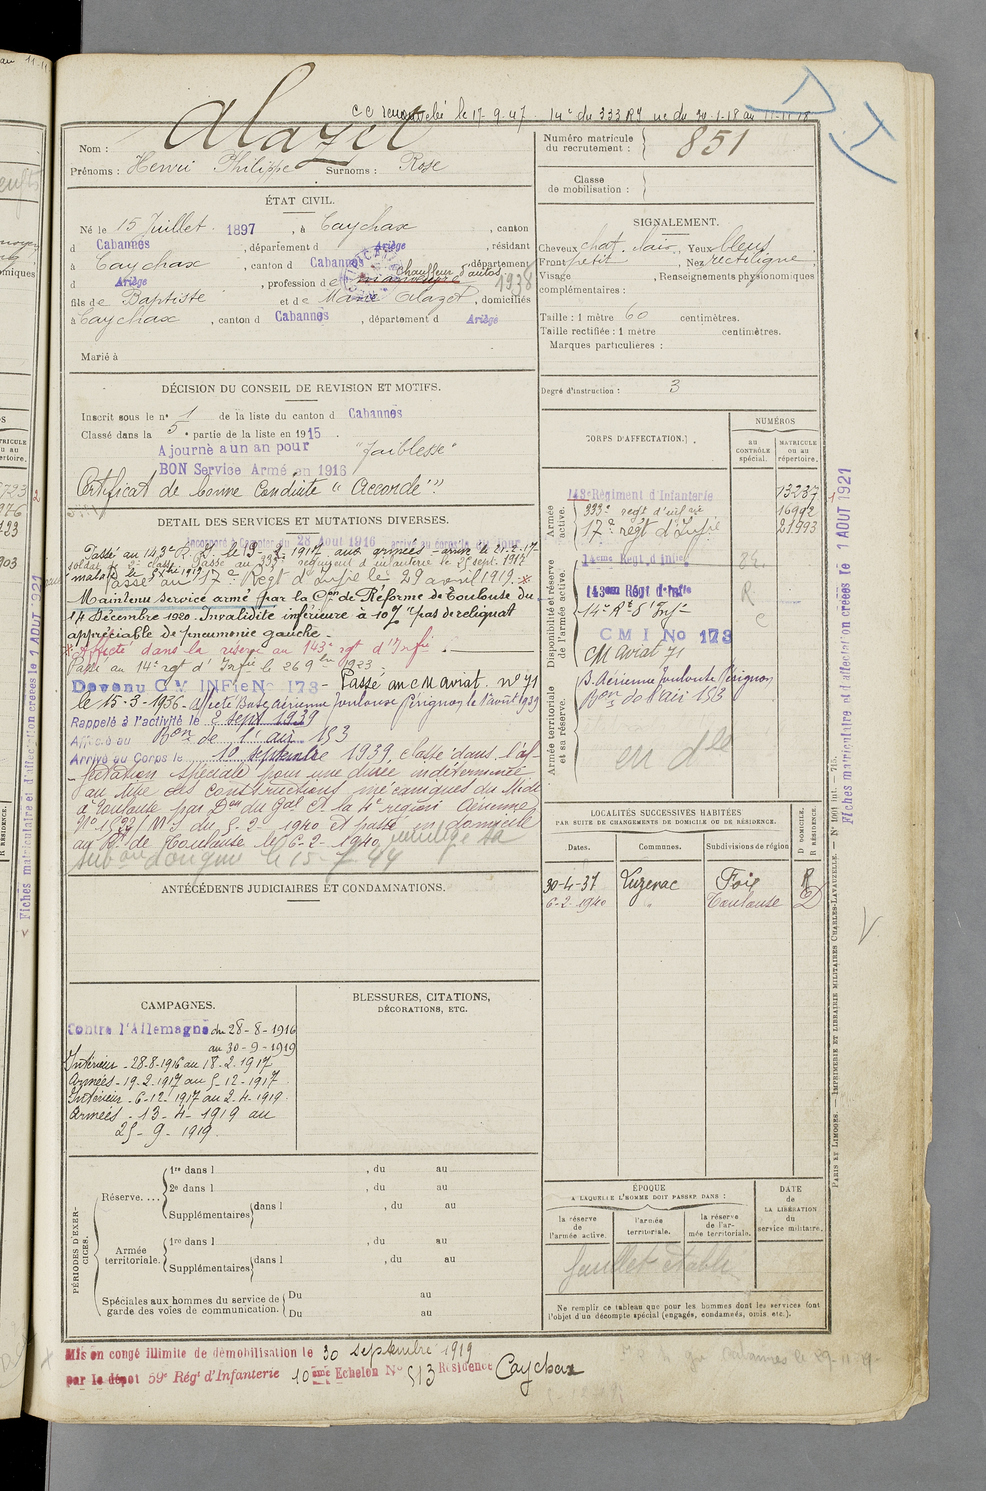 C C renouvelée le 17-9-47 14e du 333 RI ne du 20-1-18 au 11-11-18
Alazet
Nom :
Prénoms : Henri Philippe Surnoms : Rose
Numéro matricule
du recrutement : 851
Classe
de mobilisation :
ÉTAT CIVIL.
Né le 15 Juillet 1897, à Caychax, canton
d Cabannes, département d Ariège, résidant
à Caychax, canton d Cabannes, département
d Ariège, profession de chauffeur d'autos 1938
fils de Baptiste et de Marie Alazet, domiciliés
à Caychax, canton d Cabannes, département d Ariège
Marié à
SIGNALEMENT.
Cheveux chat. clair Yeux bleus
Front petit, Nez rectiligne,
Visage , Renseignements physionomiques
complémentaires :
Taille : 1 mètre 60 centimètres.
Taille rectifiée : 1 mètre centimètres.
Marques particulières :
Degré d'instruction : 3
DÉCISION DU CONSEIL DE REVISION ET MOTIFS.
Inscrit sous le n° 1 de la liste du canton d Cabannes
Classé dans la 5e partie de la liste en 1915.
Ajourné à un an pour "faiblesse"
BON Service Armé en 1916
Certificat de bonne Conduite "Accordé".
DÉTAIL DES SERVICES ET MUTATIONS DIVERSES.
Incorporé à compter du 28 Août 1916 arrivé au corps le du jour
Passé au 143e R.I. le 19-2-1917 aux armées - arrivé le 21-2-17
soldat de 2e classe Passé au 333e régiment d'infanterie le 25 sept. 1917
Passé au 17e Régt d'Infie le 29 avril 1919. *
Maintenu service armé par la Con de Réforme de Toulouse du
14 Décembre 1920. Invalidité inférieure à 10 % pas de reliquat
appréciable de pneumonie gauche.
* Affecté dans la réserve au 143e rgt d'Infie.
Passé au 14e rgt d'Infie le 26 9bre 1923.
Devenu C M INFie No 173 - Passé au CM aviat. no 71
le 15-3-1936 - Affecté Base aérienne Toulouse Pérignon le 1er août 1939
Rappelé à l'activité le 2 sept 1939
Affecté au Bon de l'air 153
Arrivé au Corps le 10 septembre 1939, classé dans l'af-
fectation spéciale pour une durée indéterminée
au titre des constructions mécaniques du Midi
à Toulouse par Don du Gal Ct la 4e région Aérienne
du 5-2-1940 et passe en domicile
au Rt de Toulouse le 6-2-1940
le 15-7-44
CORPS D'AFFECTATION.
NUMÉROS
au
CONTRÔLE
spécial.
MATRICULE
ou au
répertoire.
Armée
active.
143e Régiment d'Infanterie 13287
333e régt d'infie 16992
17e régt d'Infie 21993
Disponibilité et réserve
de l'armée active.
14eme Régt d'infie
R
143eme Régt d'Infie
14e Rt d'Infie
C M I No 173
CM aviat 71
Armée territoriale
et sa réserve.
B. Aérienne Toulouse Pérignon
Bon de l'air 153
en dlle
LOCALITÉS SUCCESSIVES HABITÉES
PAR SUITE DE CHANGEMENTS DE DOMICILE OU DE RÉSIDENCE.
Dates. Communes. Subdivisions de région D DOMICILE. R RÉSIDENCE.
30-4-37 Luzenac Foix R
6-2-1940 " Toulouse D
ANTÉCÉDENTS JUDICIAIRES ET CONDAMNATIONS.
CAMPAGNES.
Contre l'Allemagne du 28-8-1916
au 30-9-1919
Intérieur - 28-8-1916 au 18-2-1917
Armées - 19-2-1917 au 5-12-1917
Intérieur - 6-12-1917 au 2-4-1919
Armées - 13-4-1919 au
25-9-1919
BLESSURES, CITATIONS,
DÉCORATIONS, ETC.
PÉRIODES D'EXERCICES.
Réserve....
1re dans l , du au
2e dans l , du au
Supplémentaires dans l , du au
Armée
territoriale.
1re dans l , du au
Supplémentaires dans l , du au
Spéciales aux hommes du service de
garde des voies de communication.
Du au
Du au
ÉPOQUE
A LAQUELLE L'HOMME DOIT PASSER DANS :
la réserve
de
l'armée active.
l'armée
territoriale.
la réserve
de l'ar-
mée territoriale.
DATE
de
LA LIBÉRATION
du
service militaire.
feuillet établi
Ne remplir ce tableau que pour les hommes dont les services font
l'objet d'un décompte spécial (engagés, condamnés, omis, etc.).
Mis en congé illimité de démobilisation le 30 Septembre 1919
par le dépôt 59e Régt d'Infanterie 10eme Echelon No 513 Résidence Caychax
Fiches matriculaire et d'affectation créées le 1 AOUT 1921
PARIS ET LIMOGES. — IMPRIMERIE ET LIBRAIRIE MILITAIRES CHARLES-LAVAUZELLE.
Fiches matriculaire et d'affectation créées le 1 AOUT 1921